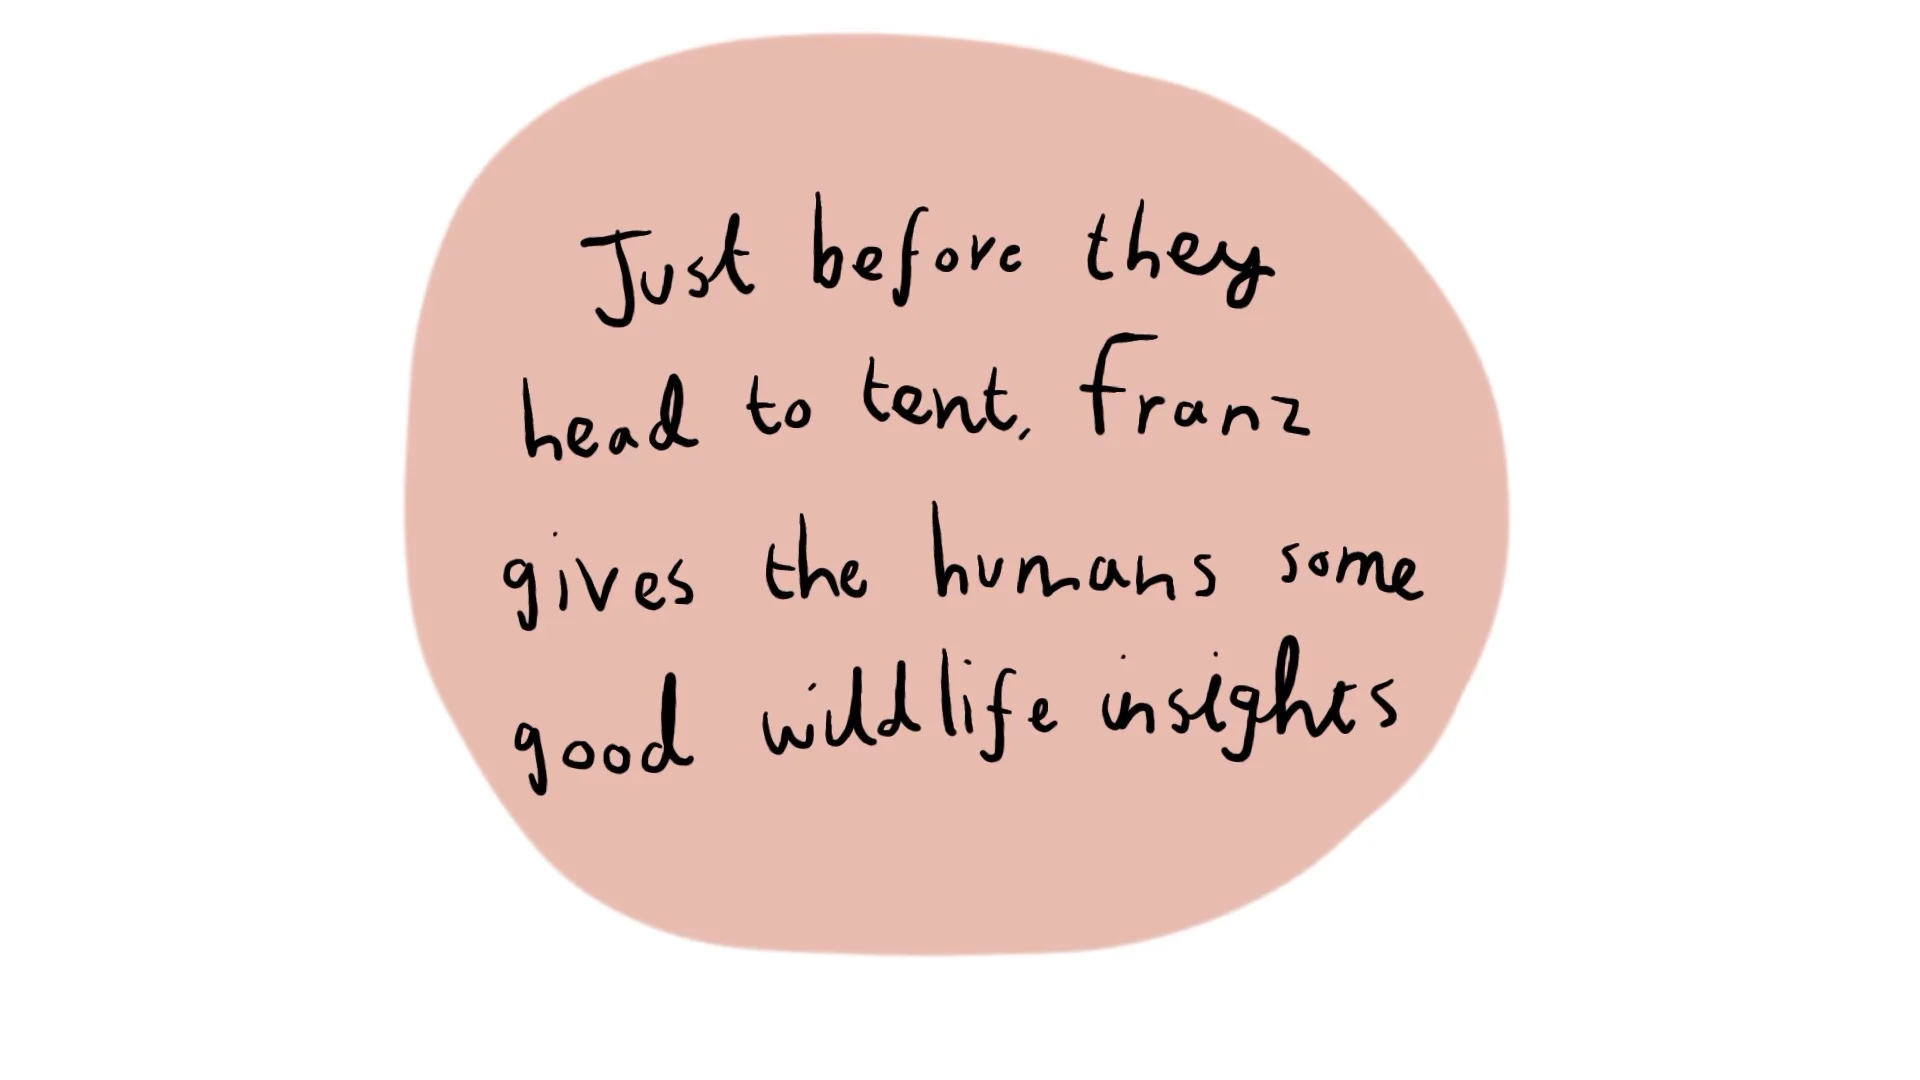 Just before they
head to tent, Franz
gives the humans some
good wildlife insights